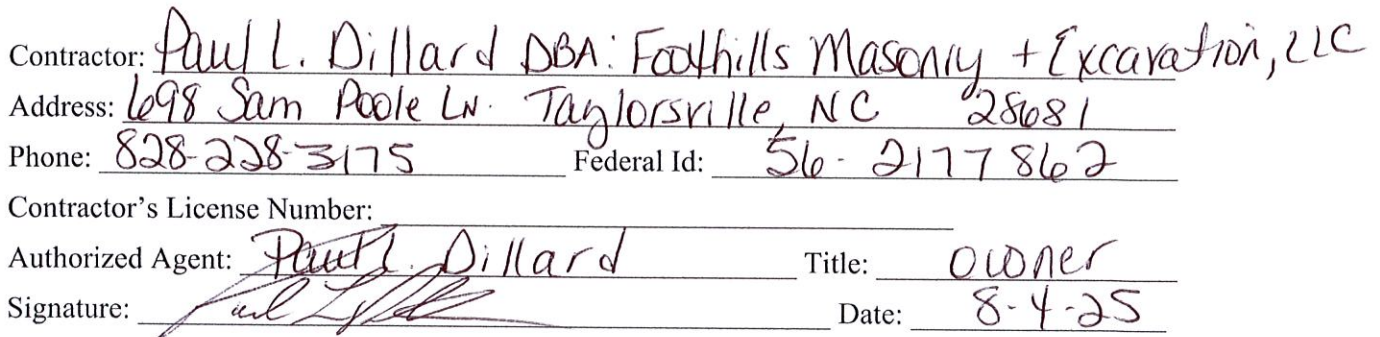 Contractor: Paul L. Dillard DBA: Foothills Masonry + Excavation, LLC
Address: 698 Sam Poole LN. Taylorsville, NC 28681
Phone: 828-228-3175 Federal Id: 56-2177862
Contractor's License Number:
Authorized Agent: Paul L. Dillard Title: owner
Signature: Date: 8-4-25